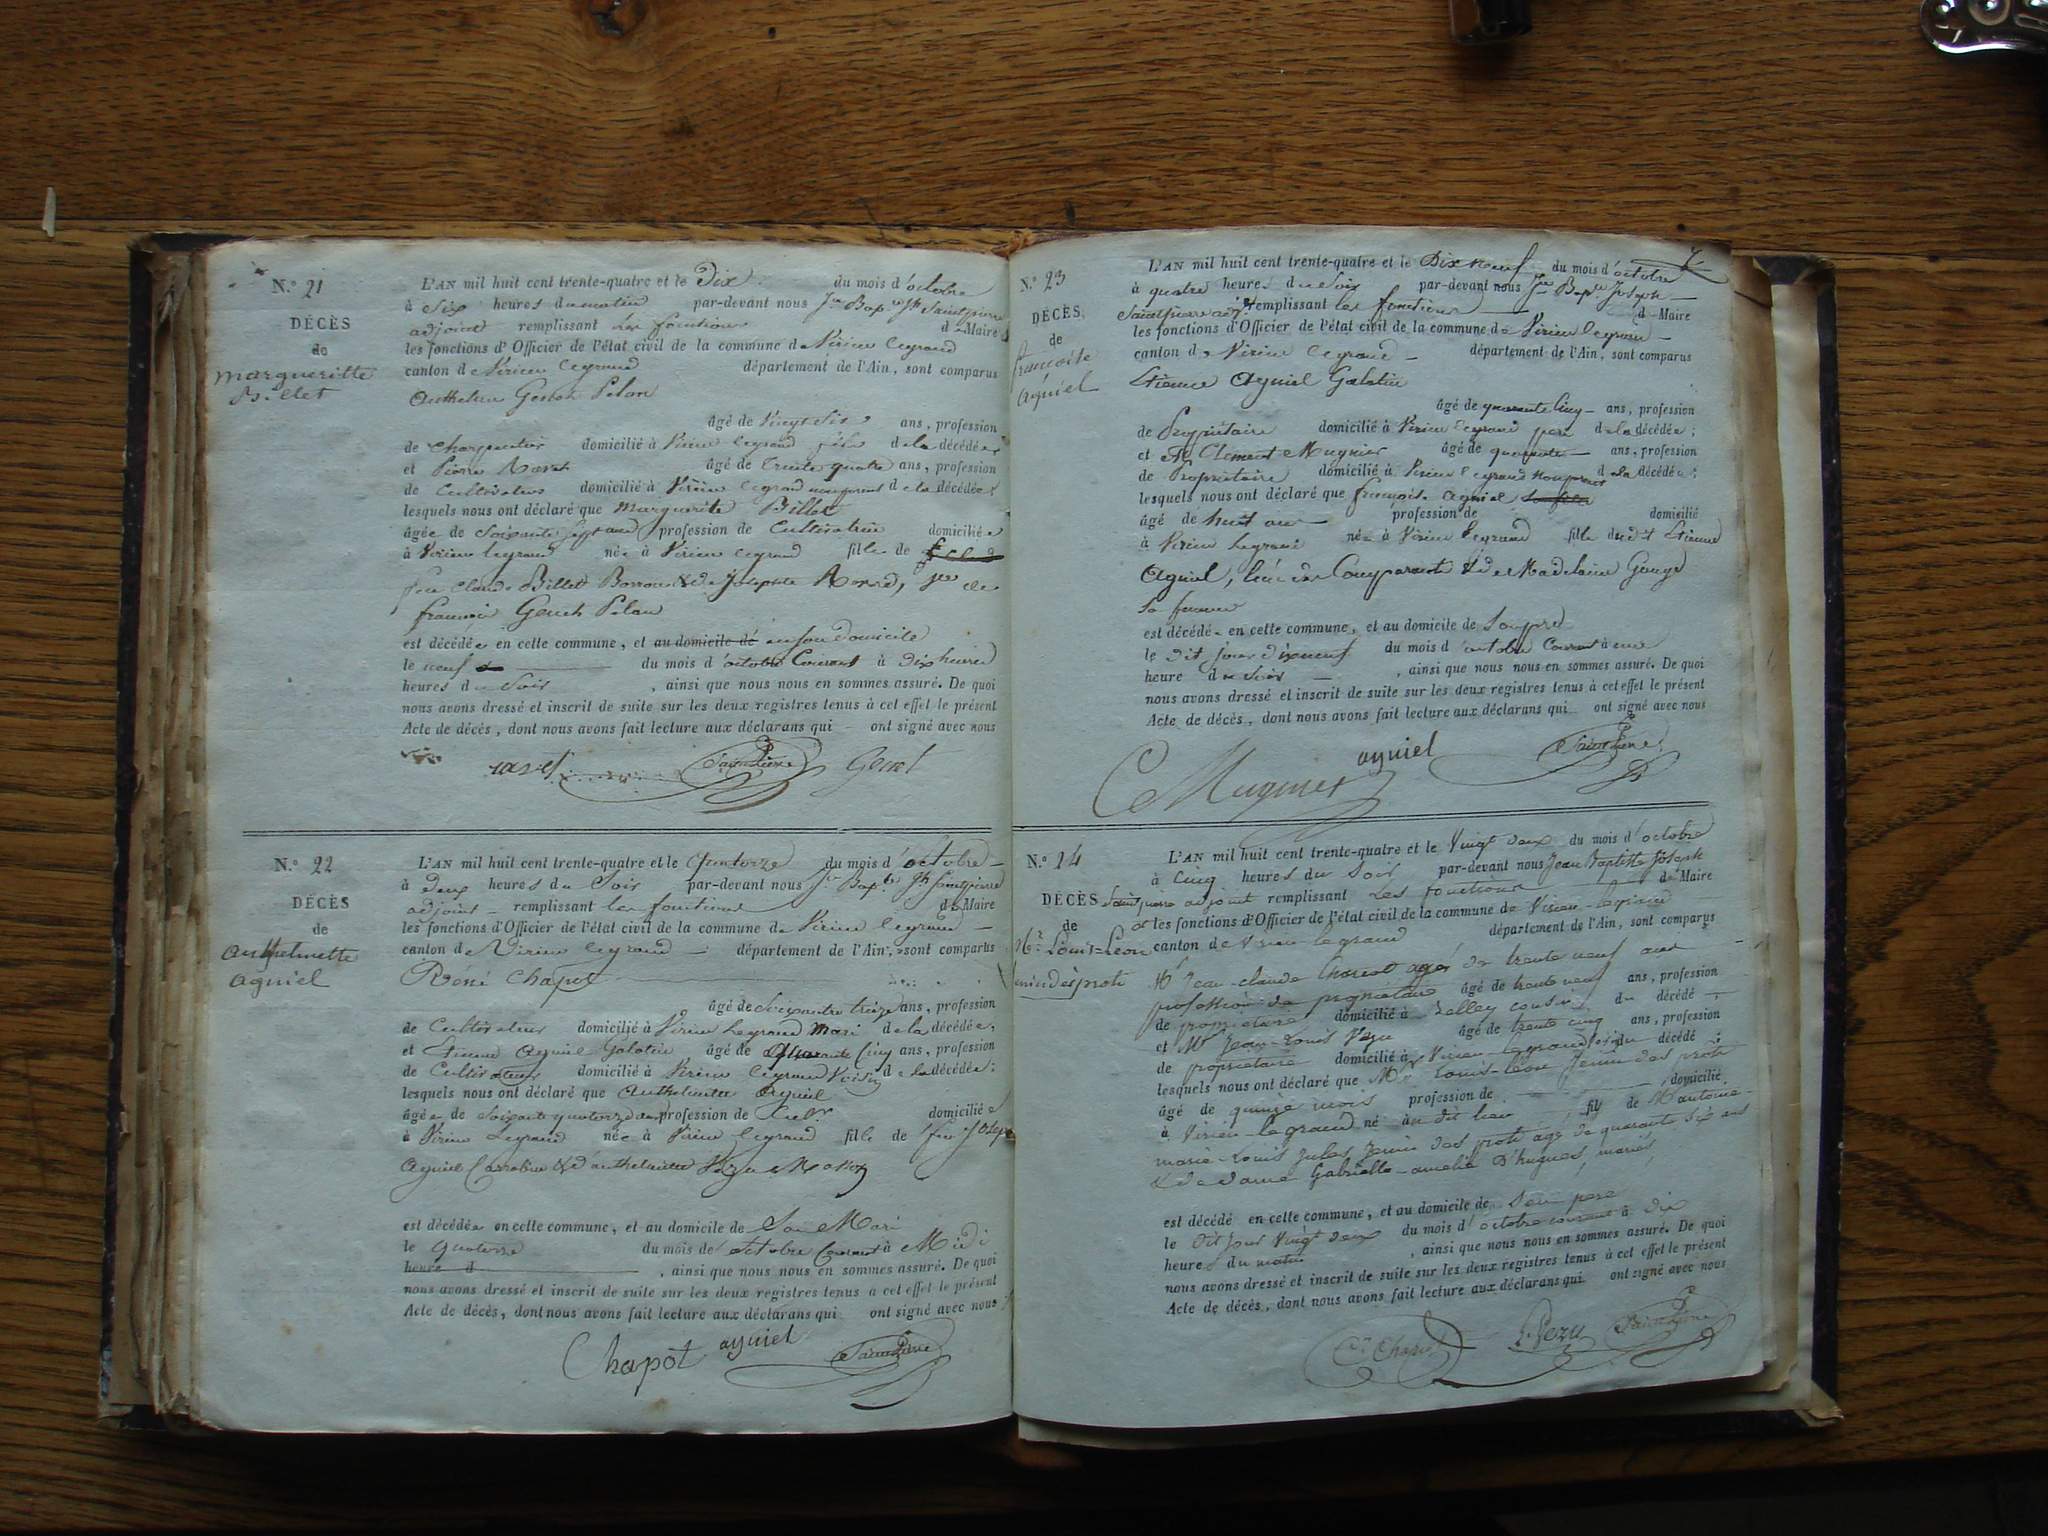 N.º 21
DÉCÈS
de
margueritte
Billet
L'AN mil huit cent trente-quatre et le Dix du mois d'octobre
à Six heures du matin par-devant nous Jn Bapte Jph Saintpierre
adjoint remplissant les fonctions de Maire
les fonctions d'Officier de l'état civil de la commune de Virieu legrand
canton de Virieu legrand département de l'Ain, sont comparus
Anthelme Genet
âgé de Vingt Six ans, profession
de Charpentier domicilié à Virieu legrand fils de la décédée
et Pierre âgé de trente quatre ans, profession
de Cultivateur domicilié à Virieu legrand de la décédée;
lesquels nous ont déclaré que marguerite Billet
âgée de Soixante Sept ans profession de Cultivatrice domiciliée
à Virieu legrand née à Virieu legrand fille de
feu Claude Billet & de Josephte
françois Genet
est décédée en cette commune, et au domicile de en son domicile
le neuf du mois d'octobre Courant à Dix heures
heures du Soir, ainsi que nous nous en sommes assuré. De quoi
nous avons dressé et inscrit de suite sur les deux registres tenus à cet effet le présent
Acte de décès, dont nous avons fait lecture aux déclarans qui ont signé avec nous
SaintPierre Genet
N.º 22
DÉCÈS
de
anthelmette
aguiel
L'AN mil huit cent trente-quatre et le Quatorze du mois d'octobre
à Deux heures du Soir par-devant nous Jn Bapte Jph Saintpierre
adjoint remplissant les fonctions de Maire
les fonctions d'Officier de l'état civil de la commune de Virieu legrand
canton de Virieu legrand département de l'Ain, sont comparus
Réné Chapot
âgé de Soixante treize ans, profession
de Cultivateur domicilié à Virieu Legrand mari de la décédée,
et Etienne Aguiel Galatin âgé de Quarante Cinq ans, profession
de Cultivateur domicilié à Virieu legrand Voisin de la décédée;
lesquels nous ont déclaré que Anthelmette Aguiel
âgée de Soixante quatorze ans profession de Cultr domiciliée
à Virieu Legrand née à Virieu legrand fille de feu Joseph
Aguiel & d'anthelmette
est décédée en cette commune, et au domicile de Son Mari
le Quatorze du mois de octobre Courant à Midi
heure d, ainsi que nous nous en sommes assuré. De quoi
nous avons dressé et inscrit de suite sur les deux registres tenus à cet effet le présent
Acte de décès, dont nous avons fait lecture aux déclarans qui ont signé avec nous
Chapot aguiel SaintPierre
N.º 23
DÉCÈS
de
françoise
aguiel
L'AN mil huit cent trente-quatre et le Dix neuf du mois d'octobre
à quatre heures du Soir par-devant nous Jn Bapte Joseph
Saintpierre adjt remplissant les fonctions de Maire
les fonctions d'Officier de l'état civil de la commune de Virieu legrand
canton de Virieu legrand département de l'Ain, sont comparus
Etienne Aguiel Galatin
âgé de quarante Cinq ans, profession
de Propriétaire domicilié à Virieu legrand pere de la décédée;
et Clement Mugnier âgé de quarante ans, profession
de Propriétaire domicilié à Virieu legrand non parent de la décédée;
lesquels nous ont déclaré que françoise Aguiel
âgé de huit ans profession de domicilié
à Virieu Legrand née à Virieu legrand fille dudit Etienne
Aguiel, l'un des Comparants & de Madelaine
Sa femme
est décédée en cette commune, et au domicile de Son pere
le Dit jour dixneuf du mois d'octobre Courant à une
heure du Soir, ainsi que nous nous en sommes assuré. De quoi
nous avons dressé et inscrit de suite sur les deux registres tenus à cet effet le présent
Acte de décès, dont nous avons fait lecture aux déclarans qui ont signé avec nous
C Mugnier aguiel SaintPierre
N.º 24
DÉCÈS
de
Mr Louis-Léon
jenin des prots
L'AN mil huit cent trente-quatre et le Vingt deux du mois d'octobre
à Cinq heures du Soir par-devant nous Jean Baptiste Joseph
Saintpierre adjoint remplissant Les fonctions de Maire
et les fonctions d'Officier de l'état civil de la commune de Virieu-legrand
canton de Virieu legrand département de l'Ain, sont comparus
Mr Jean-claude agé de trente neuf ans
profession de propriétaire âgé de trente neuf ans, profession
de propriétaire domicilié à Belley cousin du décédé
et Mr Jean-Louis âgé de trente cinq ans, profession
de propriétaire domicilié à Virieu-legrand du décédé;
lesquels nous ont déclaré que Mr Louis-Léon Jenin des prots
âgé de quinze mois profession de domicilié
à Virieu-legrand né au dit lieu fils de M antoine-
marie-Louis Jules Jenin des prots agé de quarante six ans
& de dame Gabrielle-amelie D'hugues, mariés,
est décédé en cette commune, et au domicile de Son pere
le Dit jour Vingt deux du mois d'octobre courant à dix
heures du matin, ainsi que nous nous en sommes assuré. De quoi
nous avons dressé et inscrit de suite sur les deux registres tenus à cet effet le présent
Acte de décès, dont nous avons fait lecture aux déclarans qui ont signé avec nous
SaintPierre